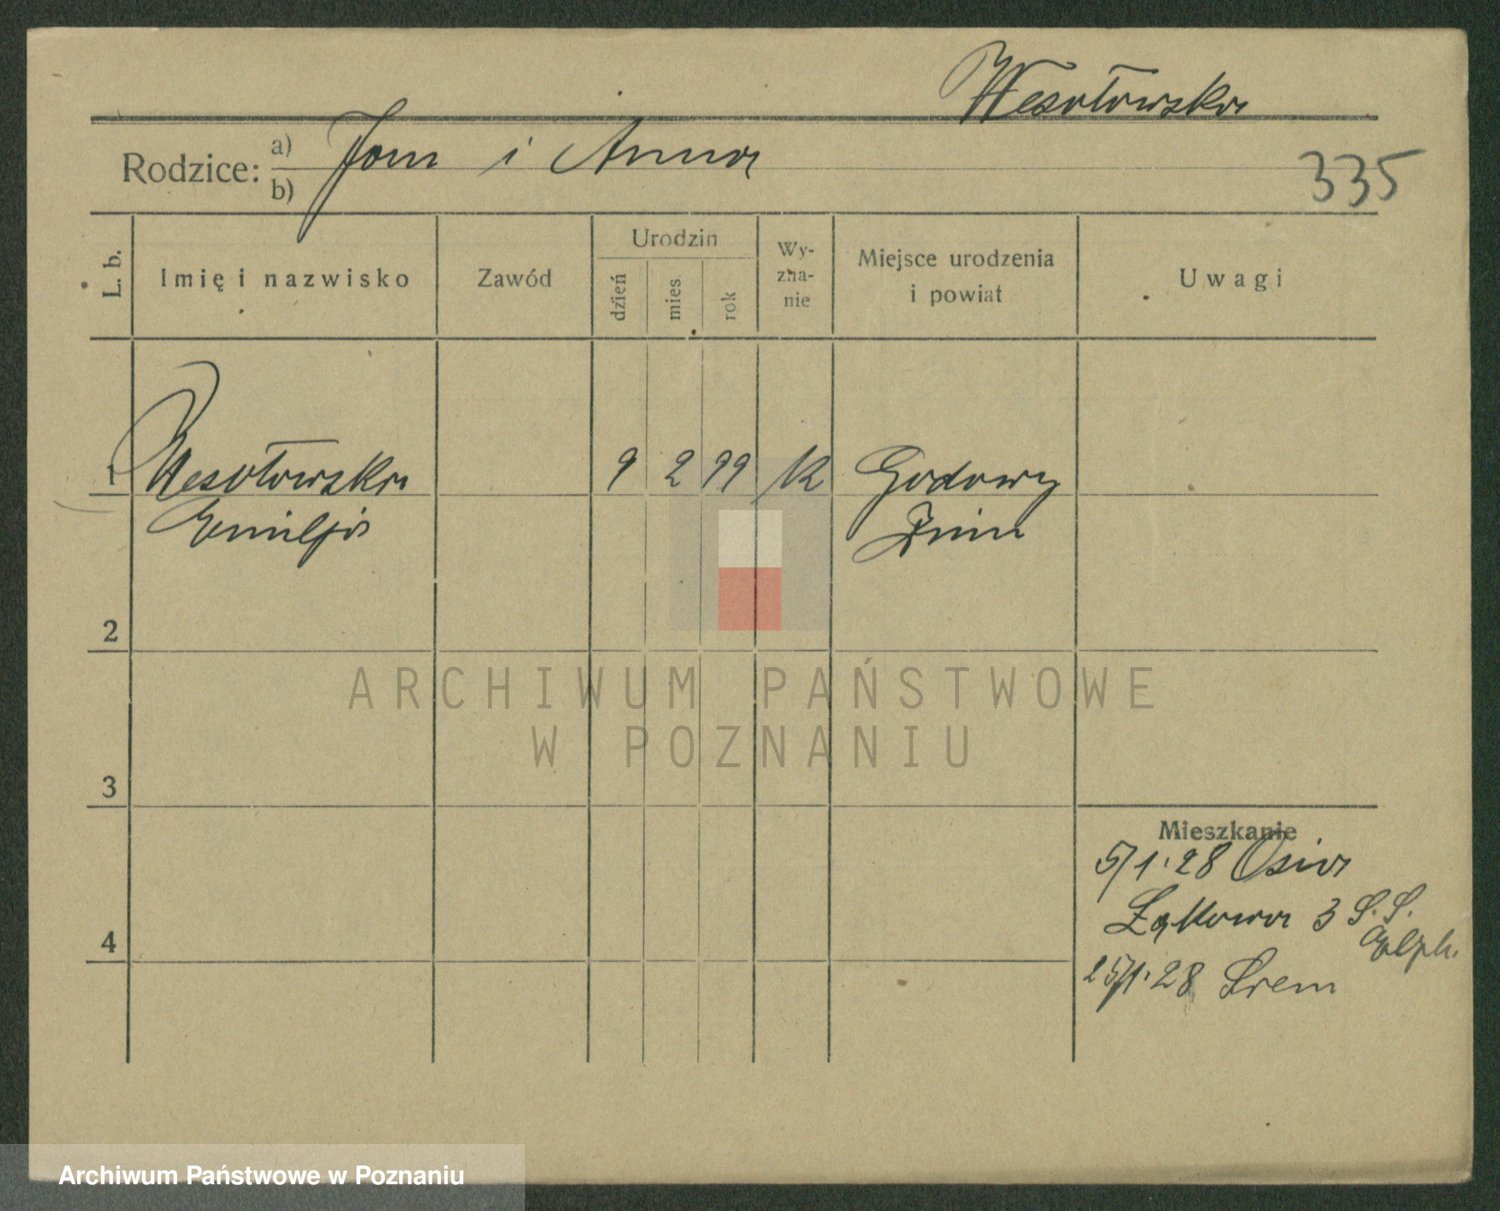 Wesołowska
Rodzice: a) Jan i Anna
b)
335
L. b.
Imię i nazwisko
Zawód
Urodzin
dzień
mies.
rok
Wy-
zna-
nie
Miejsce urodzenia
i powiat
Uwagi
1 Wesołowska 9 2 99 K Godawy
Emilja Żnin
2
ARCHIWUM PAŃSTWOWE
W POZNANIU
3
Mieszkanie
5/1.28
Łąkowa 3 S.S.
Elżb.
4
25/1.28 Śrem
Archiwum Państwowe w Poznaniu